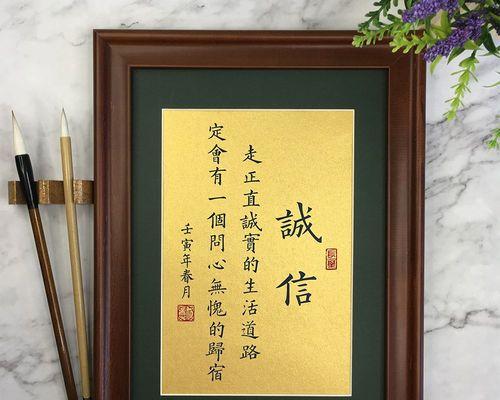 誠信
走正直誠實的生活道路
定會有一個問心無愧的歸宿
壬寅年春月